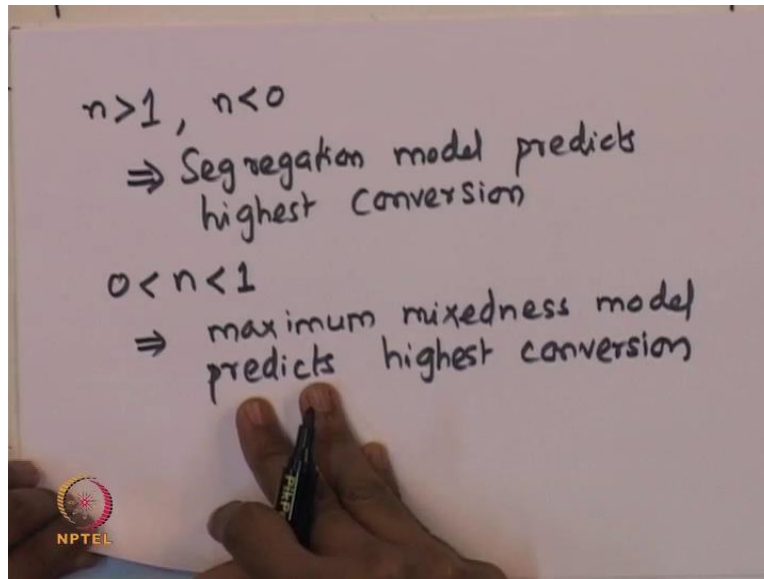 n>1, n<0
⇒ Segregation model predicts
highest conversion
0<n<1
⇒ maximum mixedness model
predicts highest conversion
NPTEL